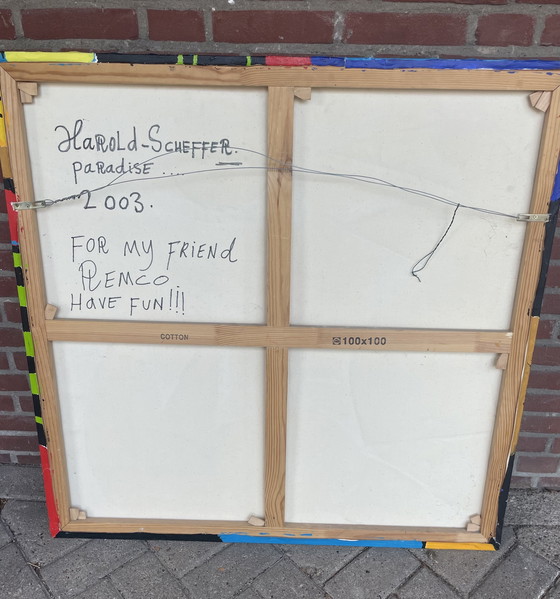 HaRoLd-ScHEFFER.
PaRadiSE ....
2003.
FOR MY FRIENd
REMCO
HAVE FUN!!!
COTTON
100x100